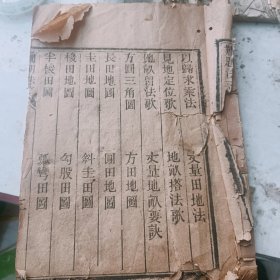 以歸求乘法 丈量田地法
見地定位歌 地畝搭法歌
地畝留法歌 丈量地畝要訣
方圓三角圖 方田地圖
長田地圖 圓田地圖
圭田地圖 斜圭田圖
梭田地圖 勾股田圖
半梭田圖 弧彎田圖